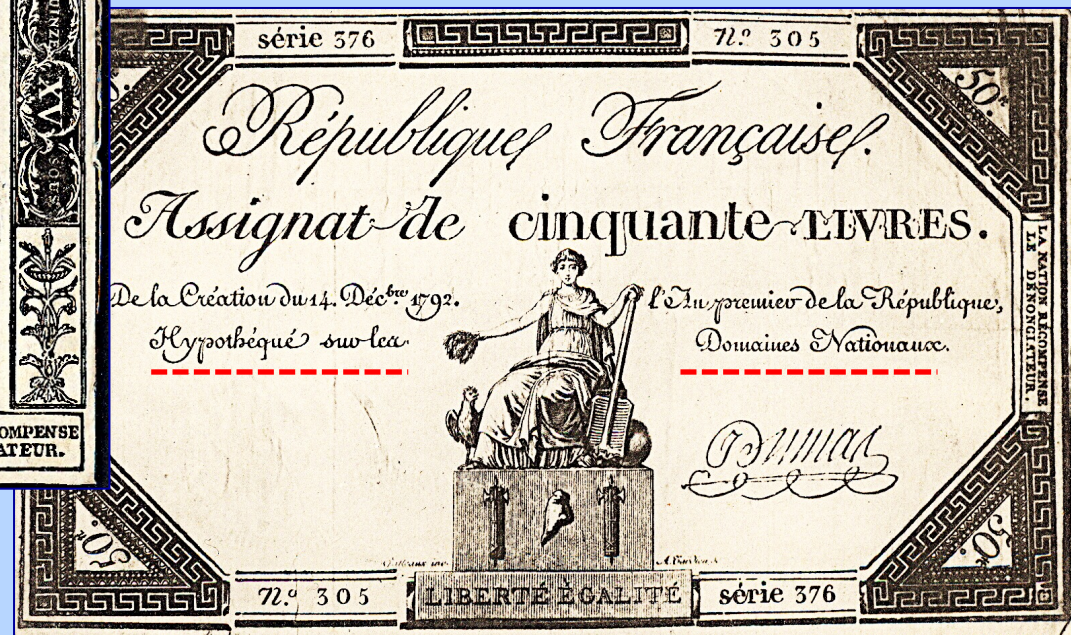 série 376
n.º 305
50.tt
République Française.
Assignat de cinquante LIVRES.
De la Création du 14. Déc.bre 1792.
l'An premier de la République,
Hypothéqué sur les
Domaines Nationaux.
LA NATION RÉCOMPENSE
LE DÉNONCIATEUR.
XV
OMPENSE
ATEUR.
Dumas
50.tt
50.tt
n.º 305
LIBERTÉ ÉGALITÉ
série 376